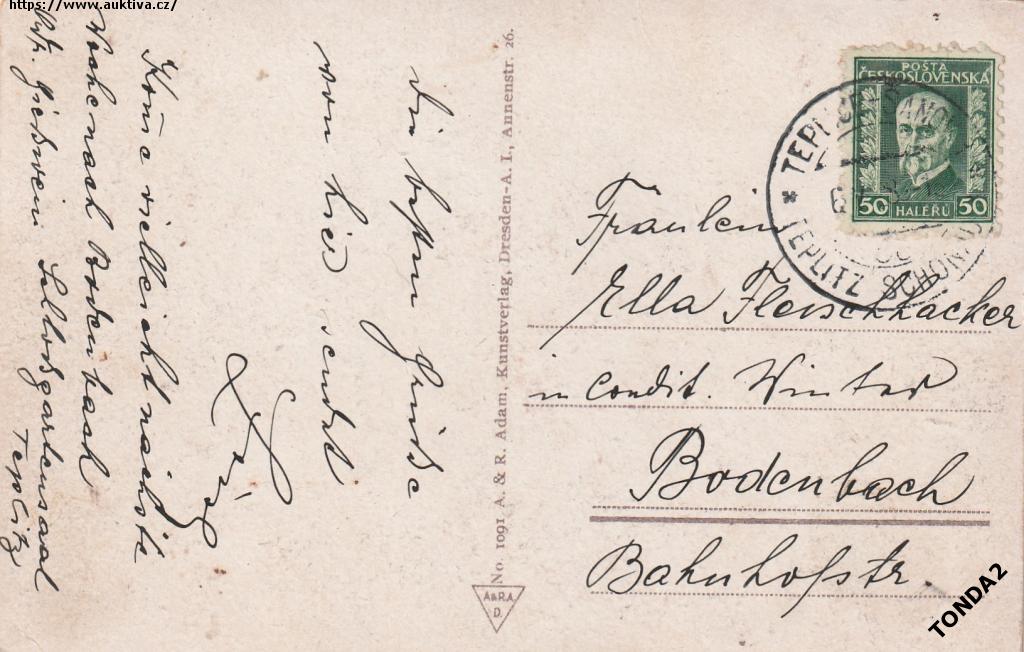 https://www.auktiva.cz/
die besten Grüße
von hier sendet
Komme vielleicht nächste
Woche nach Bodenbach
Schloßgartensaal
Teplitz
No. 1091 A. & R. Adam, Kunstverlag, Dresden-A. I., Annenstr. 26.
A&R.A.
D.
POŠTA
ČESKOSLOVENSKÁ
50 HALÉŘŮ 50
TEPLICE ŠANOV
TEPLITZ SCHÖNAU
Fräulein
Ella Fleischhacker
in Condit. Winter
Bodenbach
Bahnhofstr
TONDA2